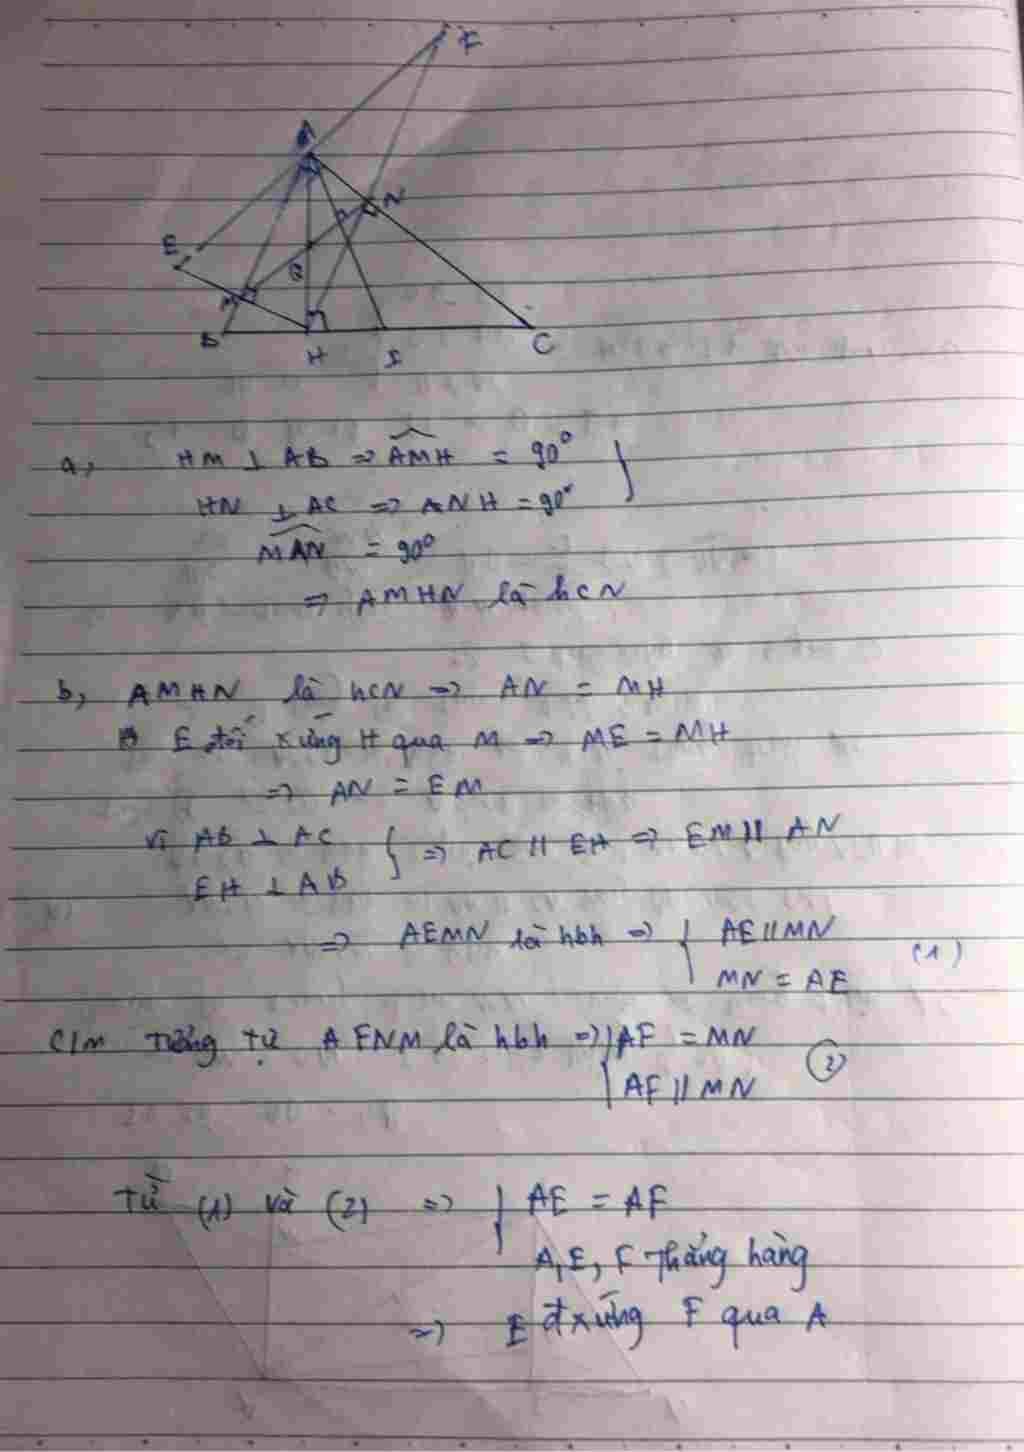 F
A
N
E
Q
M
B
H
I
C
a, HM ⊥ AB => AMH = 90°
HN ⊥ AC => ANH = 90°
MAN = 90°
=> AMHN là hcN
b, AMHN là hcN => AN = MH
E đối xứng H qua M => ME = MH
=> AN = EM
Vì AB ⊥ AC
EH ⊥ AB } => AC // EH => EM // AN
=> AEMN là hbh => { AE // MN
MN = AE (1)
C/m tương tự AFNM là hbh => { AF = MN
AF // MN (2)
Từ (1) và (2) => { AE = AF
A, E, F thẳng hàng
=> E đxứng F qua A